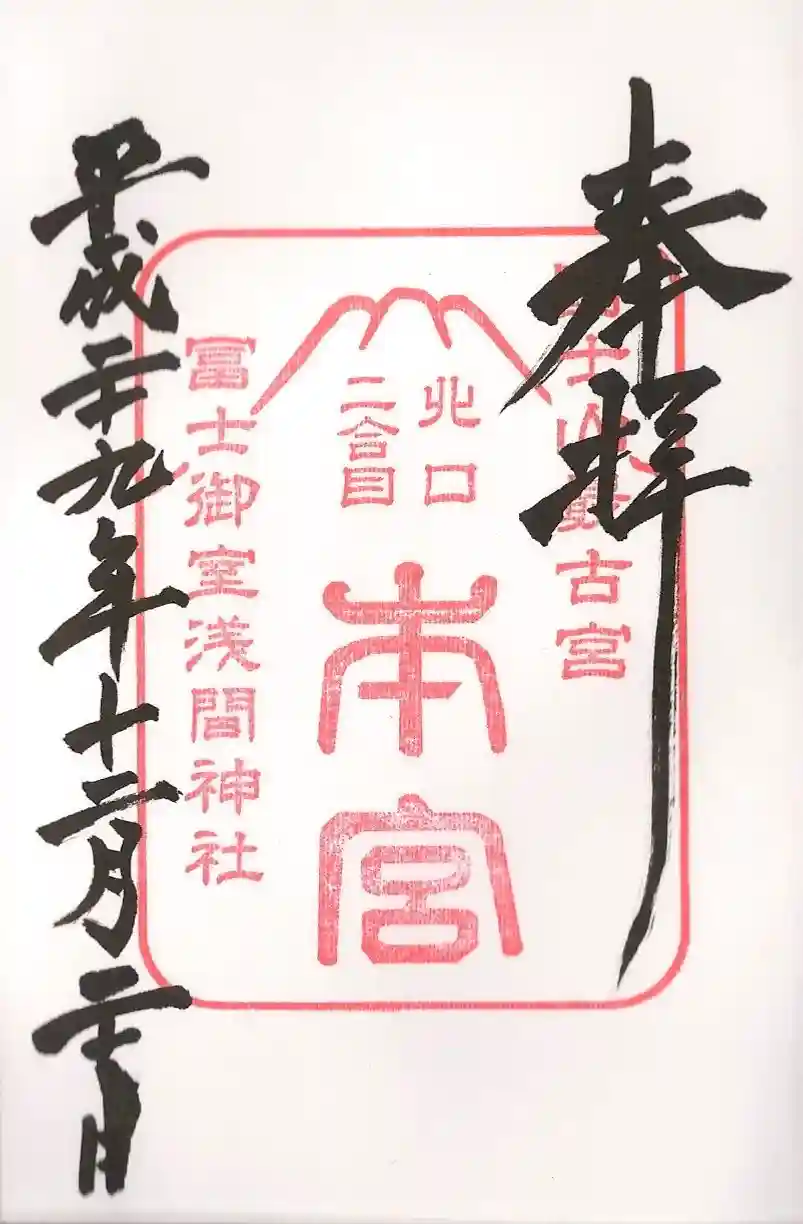 奉拝
富士山最古宮
北口
二合目
本宮
冨士御室浅間神社
平成二十九年十二月二十日